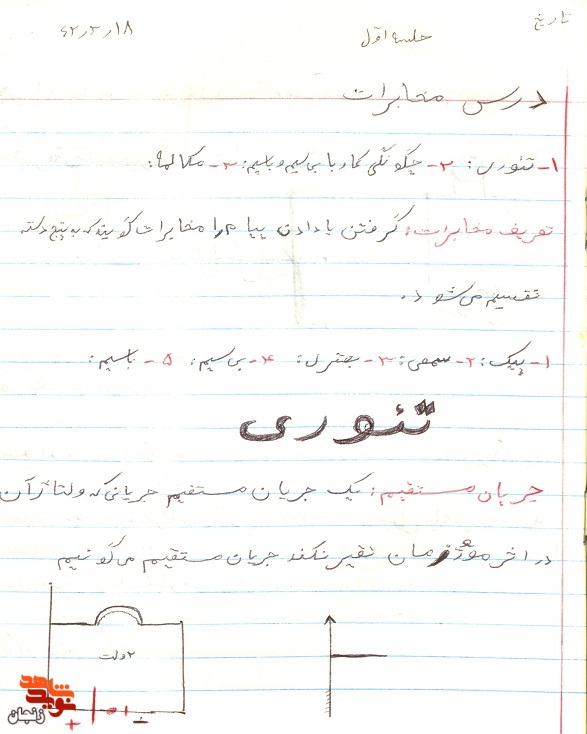 تاریخ
جلسه اول
۱۸ر۳ر۶۲
درس مخابرات
۱- تئوری: ۲- چگونگی کار با بی سیم و باسیم: ۳- مکالمه:
تعریف مخابرات: گرفتن یا دادن پیام را مخابرات گویند که به پنج دسته
تقسیم می شود.
۱- پیک: ۲- سمعی: ۳- بصری: ۴- بی سیم: ۵- باسیم:
تئوری
جریان مستقیم: یک جریان مستقیم جریانی که ولتاژ آن
در اثر مرور زمان تغیر نکند جریان مستقیم می گوئیم
۲ ولت
+ -
شاهد
نوید
زنجان